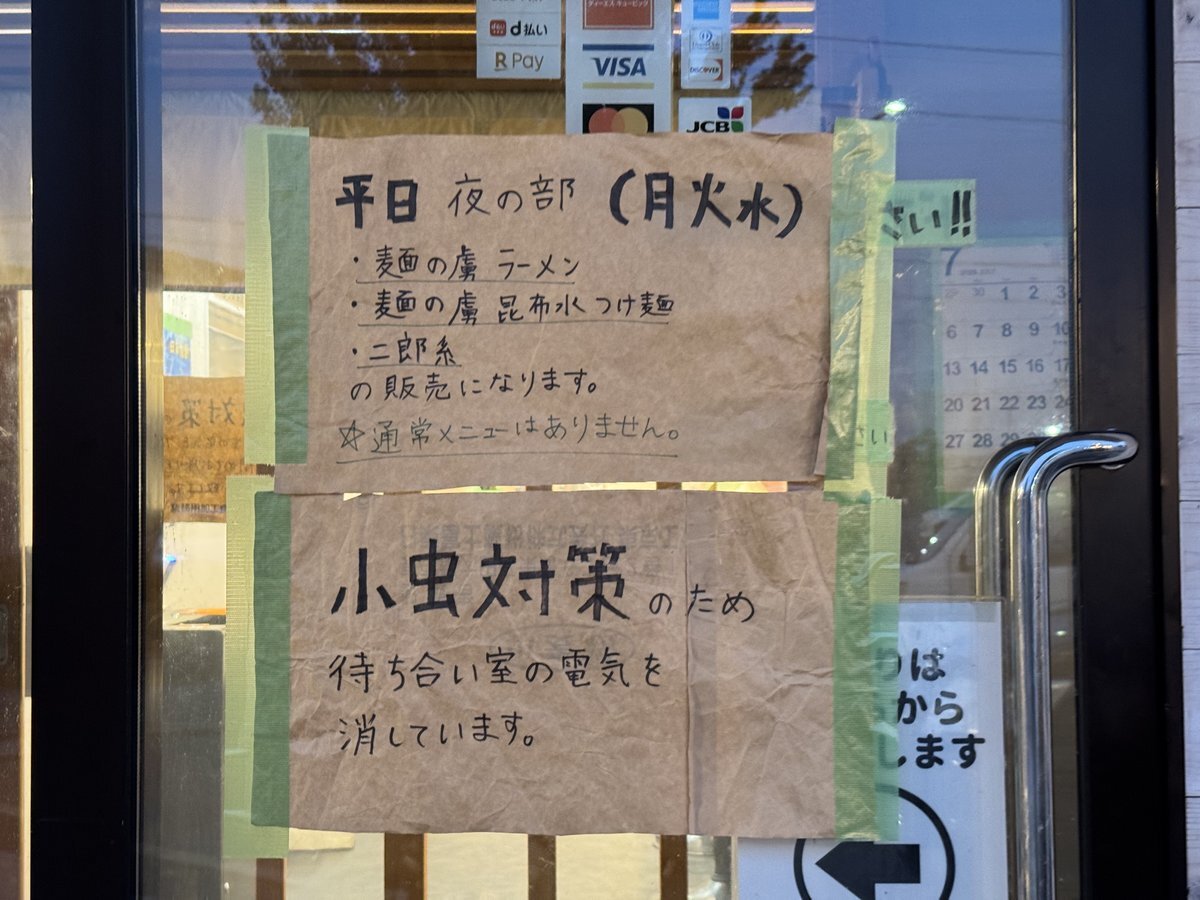 d払い
R Pay
VISA
DISCOVER
JCB
平日 夜の部 (月火水)
・麺の虜 ラーメン
・麺の虜 昆布水つけ麺
・二郎系
の販売になります。
☆通常メニューはありません。
さい!!
7
1 2 3
6 7 8 9 10
13 14 15 16 17
20 21 22 23 24
27 28 29
さい
対策
小虫対策のため
待ち合い室の電気を
消しています。
りは
から
します